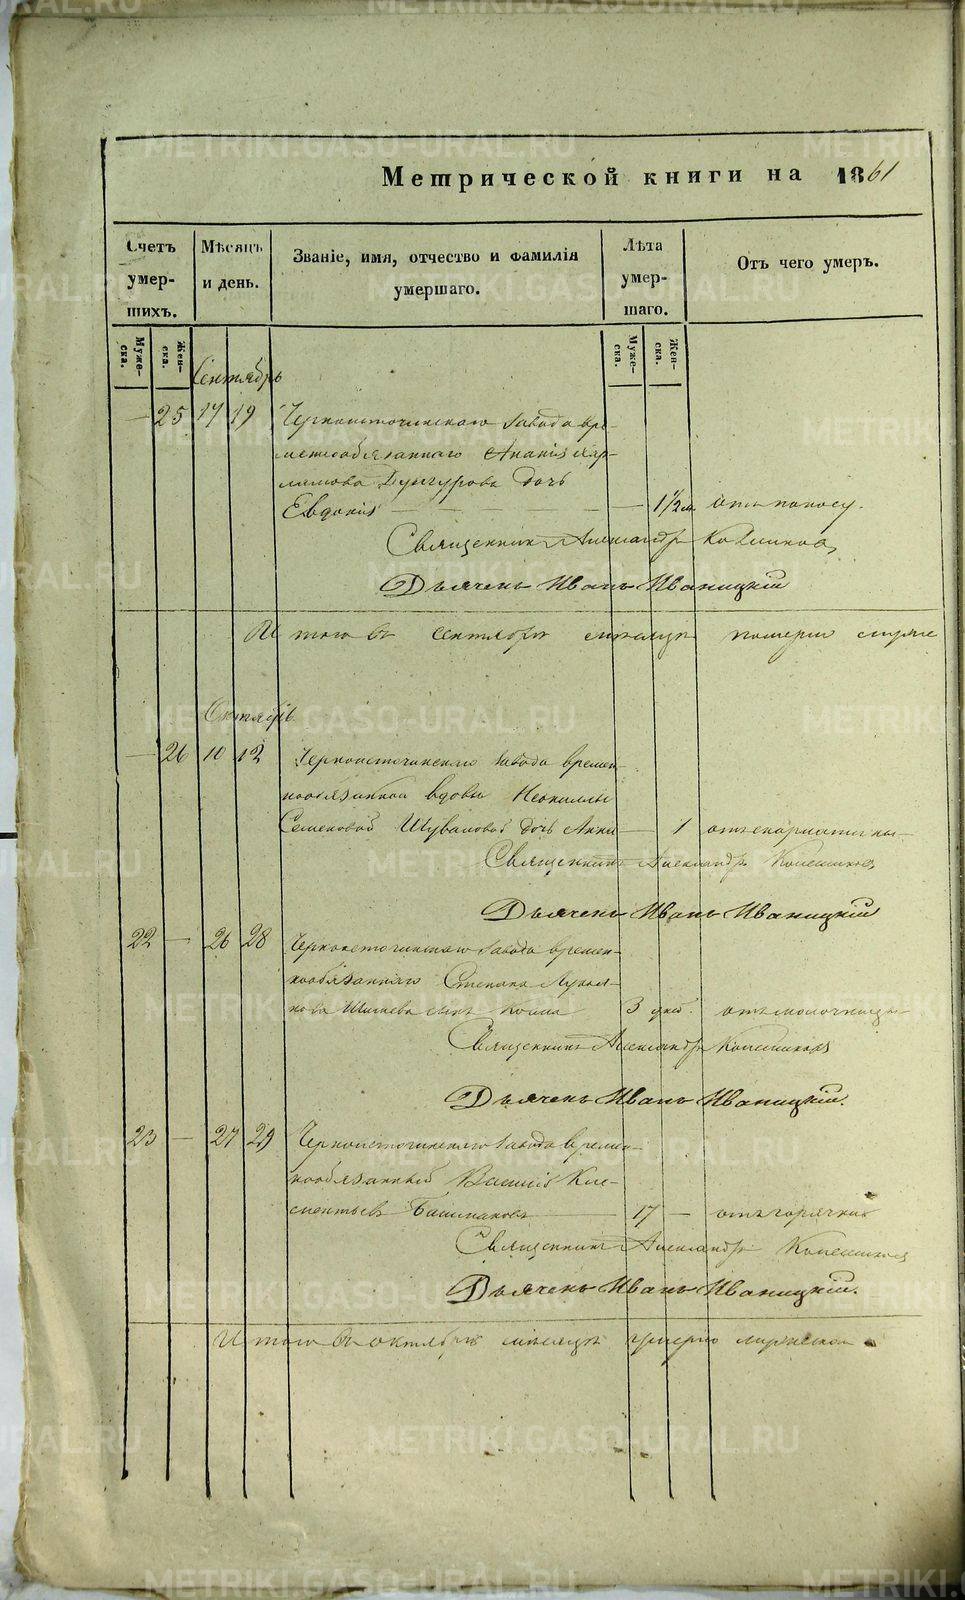 Метрической книги на 1861
Счетъ умершихъ.
Мѣсяцъ и день.
Званіе, имя, отчество и фамилія умершаго.
Лѣта умершаго.
Отъ чего умеръ.
Мужеска.
Женска.
Мужеска.
Женска.
Сентябрь
— 25 17 19 Черноисточинскаго завода вре-
меннообязаннаго Ананія Вар-
ламова дочь
Евдокія — 1 1/2 м. отъ поносу.
Священникъ Александръ
Дьячекъ Иванъ Иваницкій
Итого въ сентябрѣ мѣсяцѣ померли
Октябрь
— 26 10 12 Черноисточинскаго завода времен-
нообязанной вдовы Неониллы
Семеновой Шуваловой дочь Анна — 1 отъ скарлатины
Священникъ Александръ
Дьячекъ Иванъ Иваницкій
22 — 26 28 Черноисточинскаго завода времен-
нообязаннаго Степана
сынъ Козма 3 дней. отъ молочницы
Священникъ Александръ
Дьячекъ Иванъ Иваницкій.
23 — 27 29 Черноисточинскаго завода времен-
нообязанный Василій Кле-
ментьевъ Башмаковъ — 17 — отъ горячки
Священникъ Александръ
Дьячекъ Иванъ Иваницкій.
Итого въ октябрѣ мѣсяцѣ умерло
METRIKI.GASO-URAL.RU